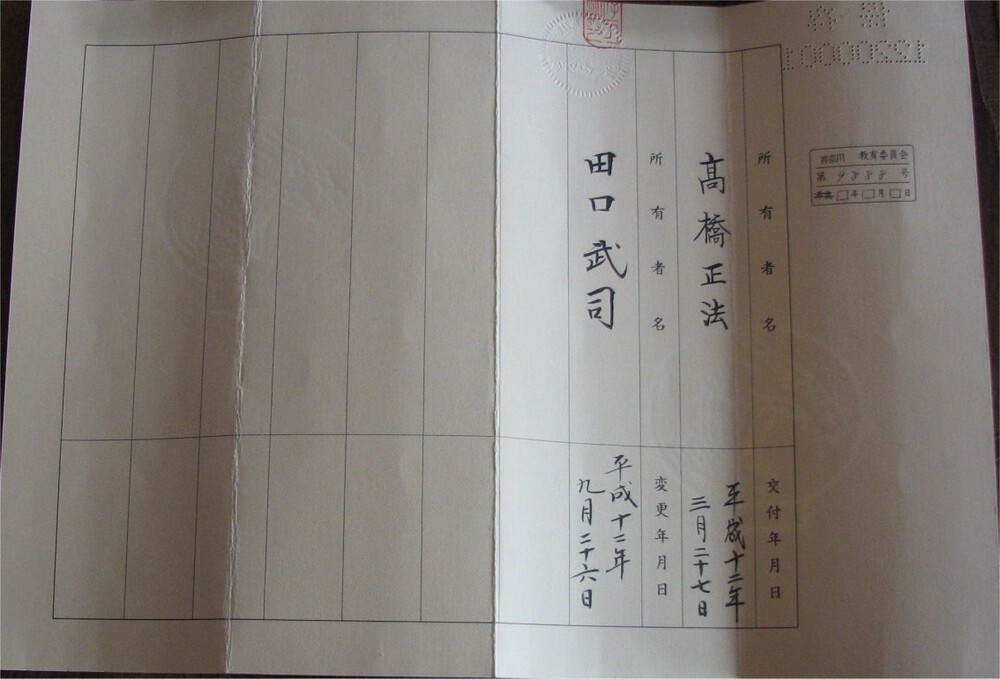 10000221
教育委員会
第9888号
年 月 日
所有者名
髙橋正法
所有者名
田口武司
交付年月日
平成十二年
三月二十七日
変更年月日
平成十二年
九月二十六日